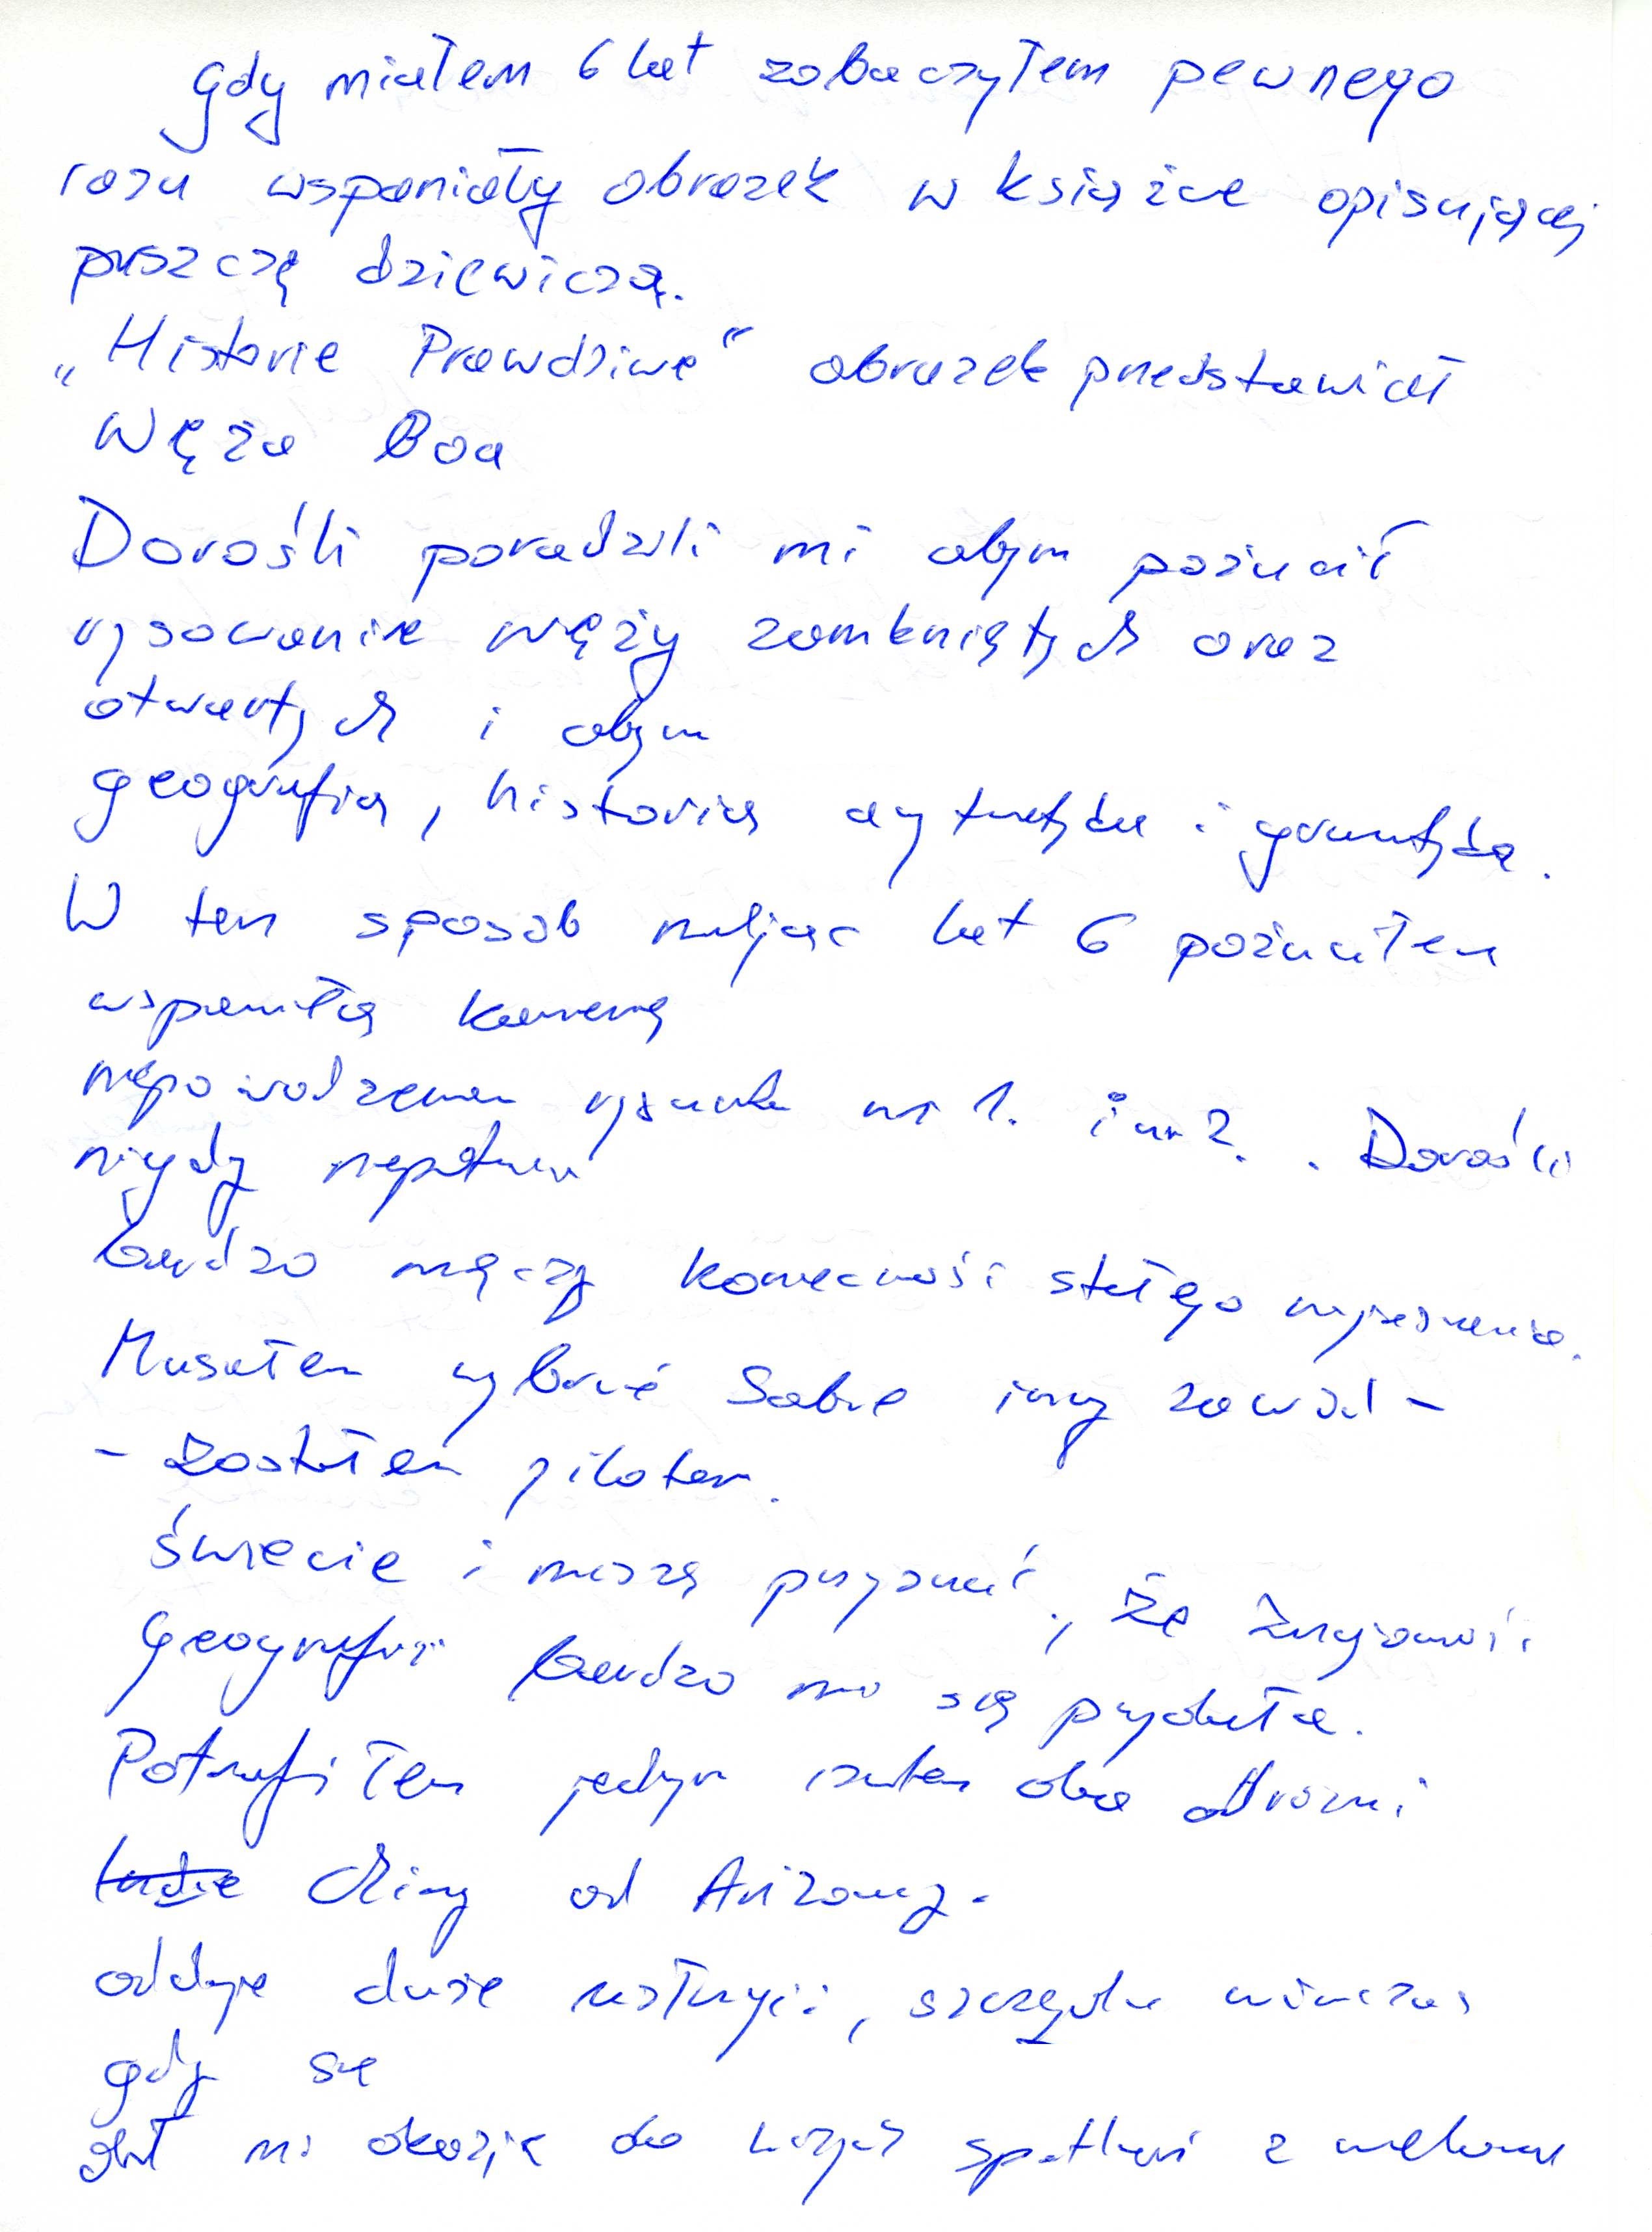 Gdy miałem 6 lat zobaczyłem pewnego
razu wspaniały obrazek w książce opisującej
puszczę dziewiczą.
„Historie Prawdziwe" obrazek przedstawiał
Węża Boa
Dorośli poradzili mi abym pożucił
rysowanie węży zamkniętych oraz
otwartych i abym
geografią, historią arytmetyką i gramatyką.
W ten sposób mając lat 6 pożuciłem
wspaniałą karierę
niepowodzeniem rysunku nr 1. i nr 2. . Dorośli
nigdy
bardzo męczy konieczność stałego wyjaśniania.
Musiałem wybrać sobie inny zawód -
- zostałem pilotem.
świecie i muszę przyznać, że znajomość
Geografii bardzo mi się przydała.
Potrafiłem jednym rzutem oka odróżnić
ludzie Chiny od Arizony.
oddaje duże usługi, szczególnie wówczas
gdy się
dał mi okazję do licznych spotkań z wieloma